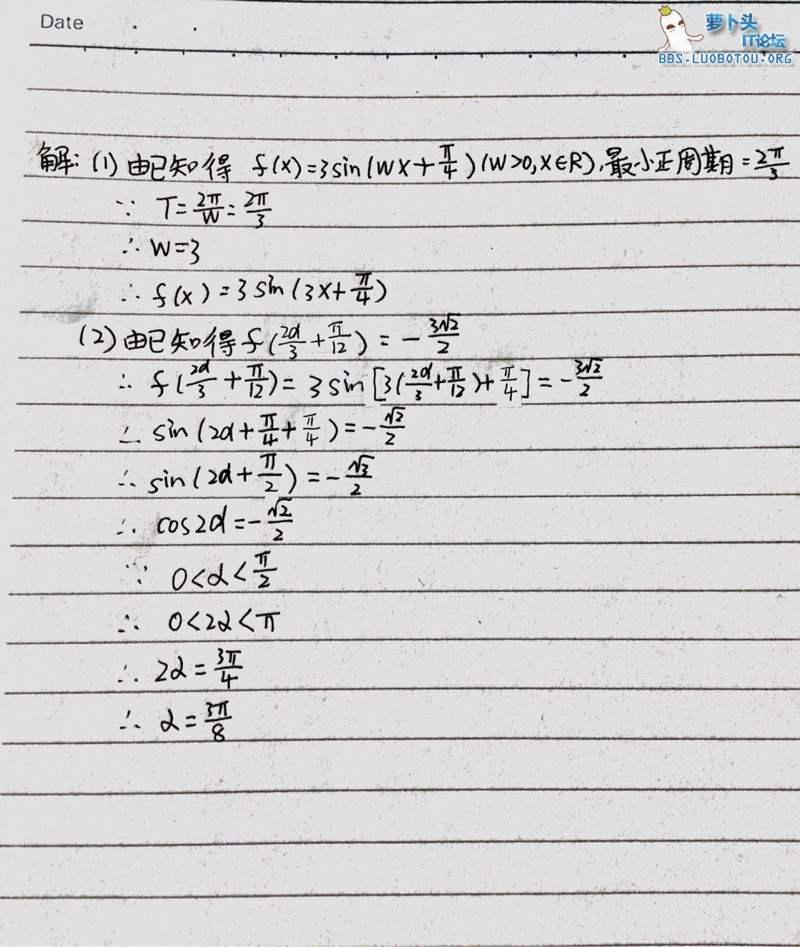 Date
萝卜头
IT论坛
BBS.LUOBOTOU.ORG
解: (1) 由已知得 f(x)=3sin(Wx+π/4)(W>0,X∈R),最小正周期=2π/3
∵ T=2π/W=2π/3
∴ W=3
∴ f(x)=3sin(3x+π/4)
(2)由已知得f(2α/3+π/12)=-3√2/2
∴ f(2α/3+π/12)=3sin[3(2α/3+π/12)+π/4]=-3√2/2
∴ sin(2α+π/4+π/4)=-√2/2
∴ sin(2α+π/2)=-√2/2
∴ cos2α=-√2/2
∵ 0<α<π/2
∴ 0<2α<π
∴ 2α=3π/4
∴ α=3π/8